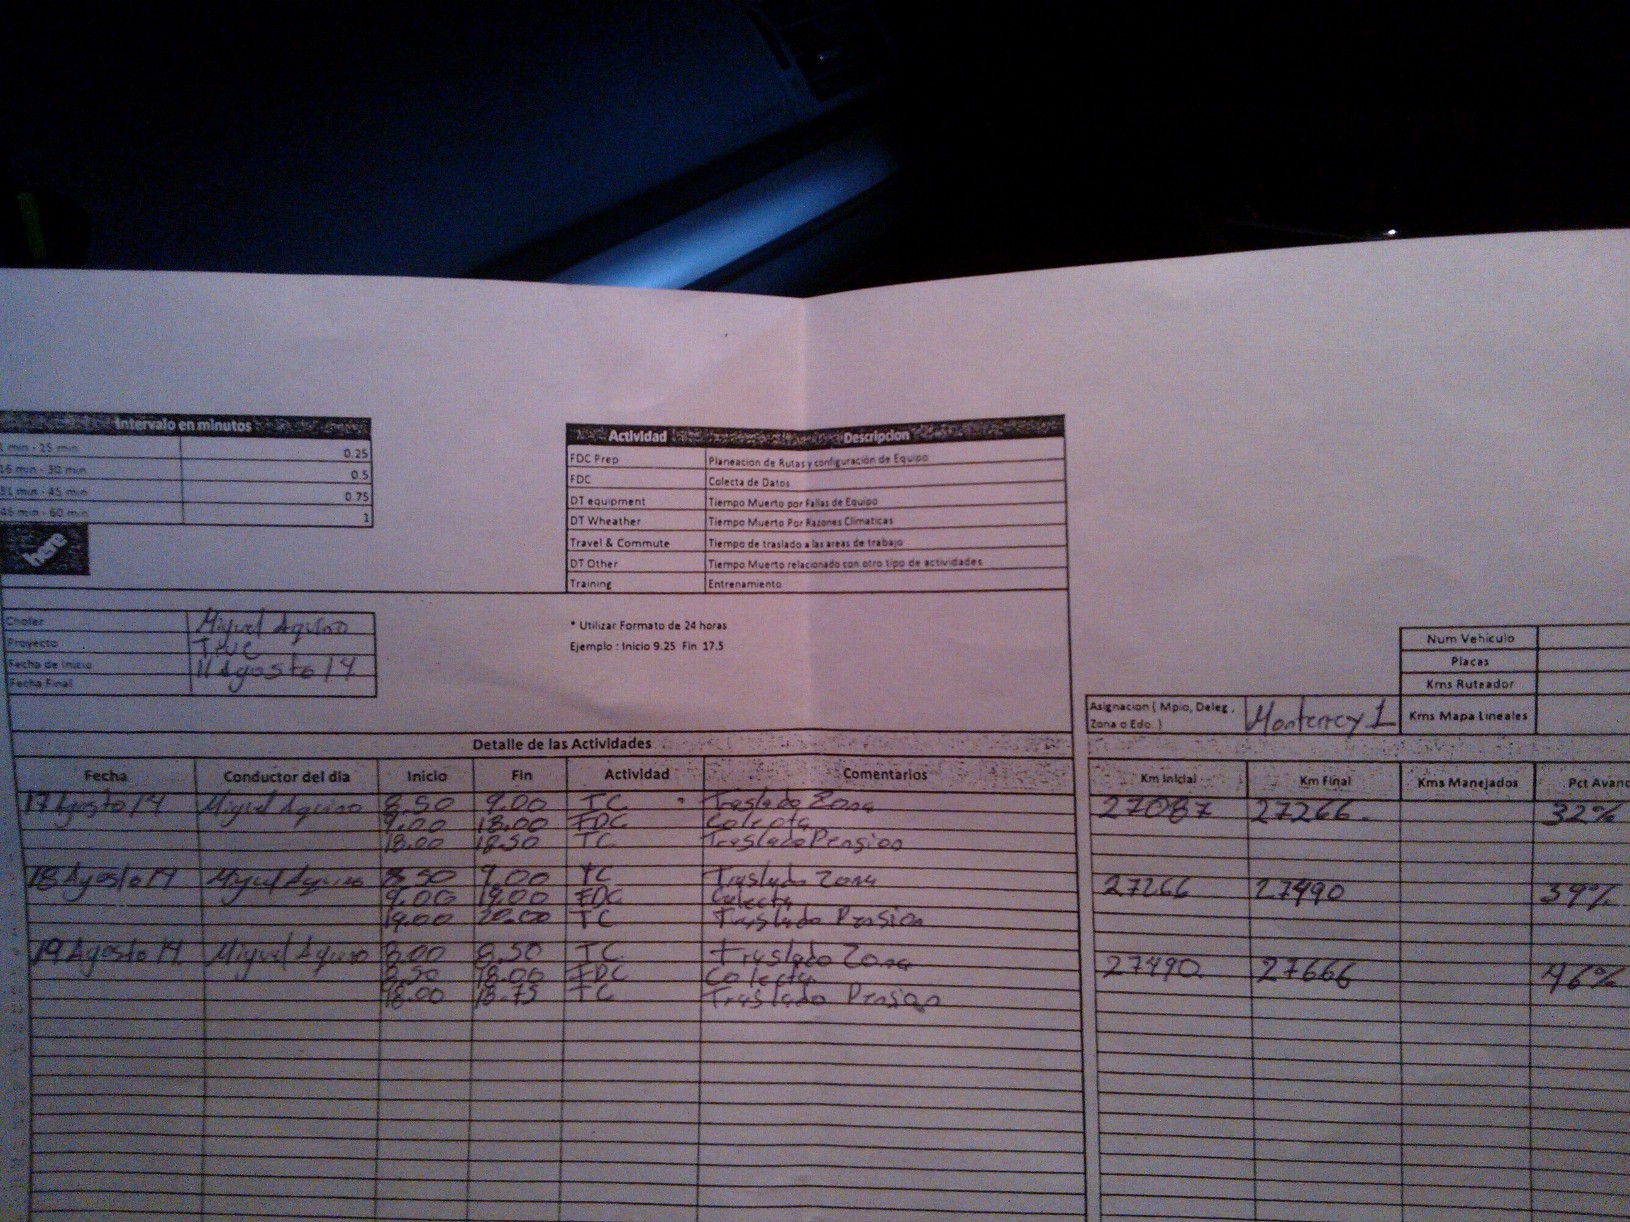 Intervalo en minutos
1 min - 15 min 0.25
16 min - 30 min 0.5
31 min - 45 min 0.75
46 min - 60 min 1
here
Actividad Descripcion
FDC Prep Planeacion de Rutas y configuración de Equipo
FDC Colecta de Datos
DT equipment Tiempo Muerto por Fallas de Equipo
DT Wheather Tiempo Muerto Por Razones Climaticas
Travel & Commute Tiempo de traslado a las areas de trabajo
DT Other Tiempo Muerto relacionado con otro tipo de actividades
Training Entrenamiento
Chofer Miguel Aquino
Proyecto
Fecha de Inicio 11 Agosto 14
Fecha Final
* Utilizar Formato de 24 horas
Ejemplo : Inicio 9.25 Fin 17.5
Num Vehiculo
Placas
Kms Ruteador
Kms Mapa Lineales
Asignacion ( Mpio, Deleg ,
Zona o Edo. ) Monterrey 1
Detalle de las Actividades
Fecha Conductor del dia Inicio Fin Actividad Comentarios Km Inicial Km Final Kms Manejados Pct Avanc
17 Agosto 14 Miguel Aquino 8.50 9.00 TC Traslado Zona 27087 27266 32%
9.00 18.00 FDC Colecta
18.00 18.50 TC Traslado Pension
18 Agosto 14 Miguel Aquino 8.50 9.00 TC Traslado Zona 27266 27490 39%
9.00 19.00 FDC Colecta
19.00 20.00 TC Traslado Pension
19 Agosto 14 Miguel Aquino 8.00 8.50 TC Traslado Zona 27490 27666 46%
8.50 18.00 FDC Colecta
18.00 18.75 TC Traslado Pension